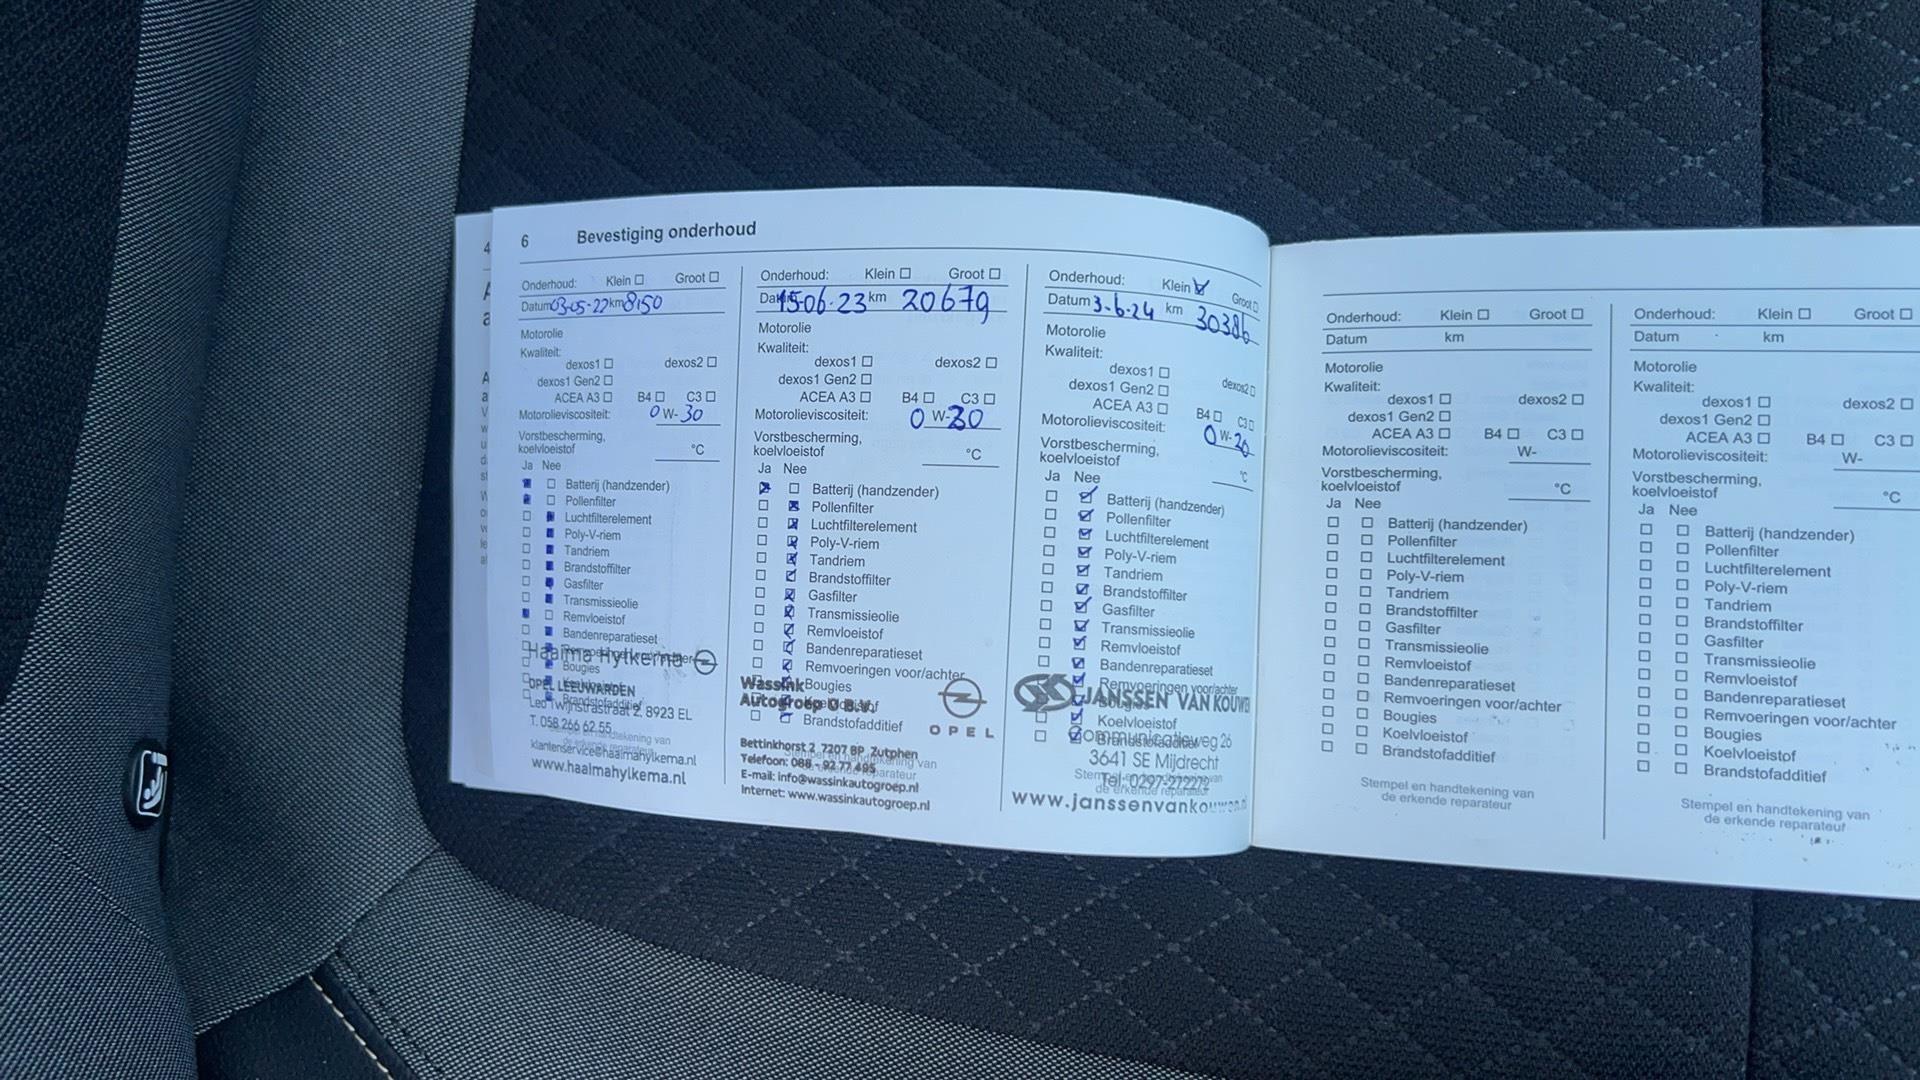 6 Bevestiging onderhoud
Onderhoud: Klein Groot
Datum 03-05-22 km 8150
Motorolie
Kwaliteit:
dexos1 dexos2
dexos1 Gen2
ACEA A3 B4 C3
Motorolieviscositeit: 0 W- 30
Vorstbescherming,
koelvloeistof °C
Ja Nee
Batterij (handzender)
Pollenfilter
Luchtfilterelement
Poly-V-riem
Tandriem
Brandstoffilter
Gasfilter
Transmissieolie
Remvloeistof
Bandenreparatieset
Haaima Hylkema
Bougies
OPEL LEEUWARDEN
Brandstofadditief
Leo Twijnstrastraat 2, 8923 EL
T. 058 266 62 55
Stempel en handtekening van
de erkende reparateur
klantenservice@haaimahylkema.nl
www.haaimahylkema.nl
Onderhoud: Klein Groot
Datum 15-06-23 km 20679
Motorolie
Kwaliteit:
dexos1 dexos2
dexos1 Gen2
ACEA A3 B4 C3
Motorolieviscositeit: 0 W- 30
Vorstbescherming,
koelvloeistof °C
Ja Nee
Batterij (handzender)
Pollenfilter
Luchtfilterelement
Poly-V-riem
Tandriem
Brandstoffilter
Gasfilter
Transmissieolie
Remvloeistof
Bandenreparatieset
Remvoeringen voor/achter
Wassink Bougies
Autogroep
Brandstofadditief
OPEL
Bettinkhorst 2 7207 BP Zutphen
Stempel en handtekening van
Telefoon: 088 - 92 77 495
de erkende reparateur
E-mail: info@wassinkautogroep.nl
Internet: www.wassinkautogroep.nl
Onderhoud: Klein Groot
Datum 3-6-24 km 30386
Motorolie
Kwaliteit:
dexos1 dexos2
dexos1 Gen2
ACEA A3 B4 C3
Motorolieviscositeit: 0 W-
Vorstbescherming,
koelvloeistof °C
Ja Nee
Batterij (handzender)
Pollenfilter
Luchtfilterelement
Poly-V-riem
Tandriem
Brandstoffilter
Gasfilter
Transmissieolie
Remvloeistof
Bandenreparatieset
Remvoeringen voor/achter
JANSSEN VAN KOUWEN
Bougies
Koelvloeistof
Communicatieweg 26
Brandstofadditief
3641 SE Mijdrecht
Tel. 0297-272272
de erkende reparateur
www.janssenvankouwen.nl
Onderhoud: Klein Groot
Datum km
Motorolie
Kwaliteit:
dexos1 dexos2
dexos1 Gen2
ACEA A3 B4 C3
Motorolieviscositeit: W-
Vorstbescherming,
koelvloeistof °C
Ja Nee
Batterij (handzender)
Pollenfilter
Luchtfilterelement
Poly-V-riem
Tandriem
Brandstoffilter
Gasfilter
Transmissieolie
Remvloeistof
Bandenreparatieset
Remvoeringen voor/achter
Bougies
Koelvloeistof
Brandstofadditief
Stempel en handtekening van
de erkende reparateur
Onderhoud: Klein Groot
Datum km
Motorolie
Kwaliteit:
dexos1 dexos2
dexos1 Gen2
ACEA A3 B4 C3
Motorolieviscositeit: W-
Vorstbescherming,
koelvloeistof °C
Ja Nee
Batterij (handzender)
Pollenfilter
Luchtfilterelement
Poly-V-riem
Tandriem
Brandstoffilter
Gasfilter
Transmissieolie
Remvloeistof
Bandenreparatieset
Remvoeringen voor/achter
Bougies
Koelvloeistof
Brandstofadditief
Stempel en handtekening van
de erkende reparateur